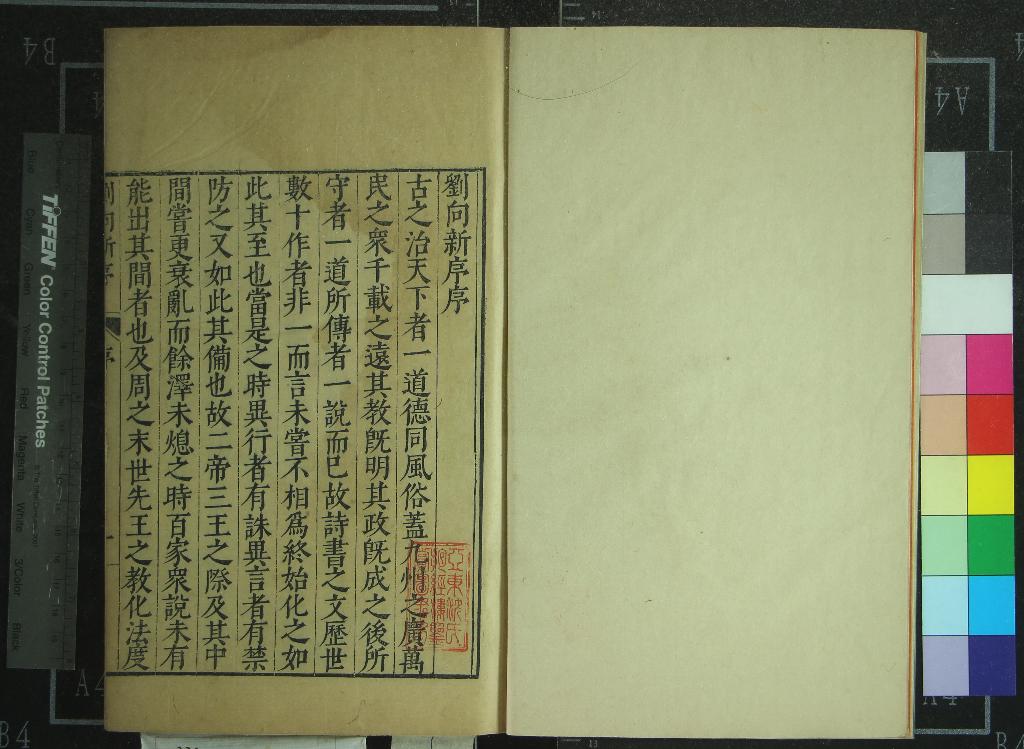 劉向新序序
古之治天下者一道德同風俗蓋九州之廣萬
民之衆千載之遠其教旣明其政旣成之後所
守者一道所傳者一說而已故詩書之文歷世
數十作者非一而言未嘗不相爲終始化之如
此其至也當是之時異行者有誅異言者有禁
防之又如此其備也故二帝三王之際及其中
間嘗更衰亂而餘澤未熄之時百家衆說未有
能出其間者也及周之末世先王之教化法度
劉向新序
序
一
亞東沈氏
TIFFEN Color Control Patches
Blue
Cyan
Green
Yellow
Red
Magenta
White
3/Color
Black
B4
A4
A4
A4
B4